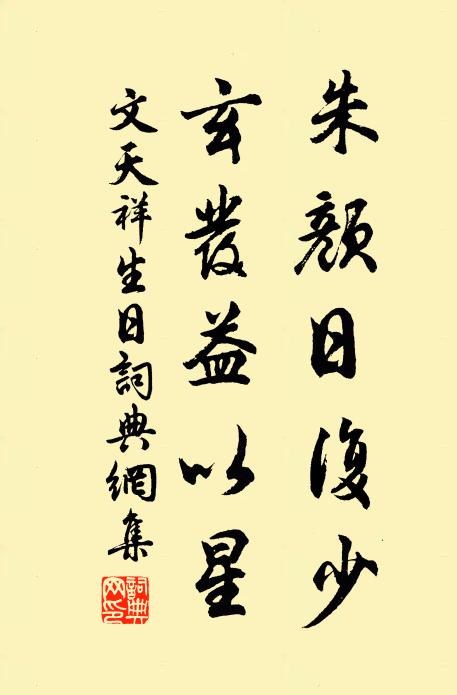 朱顏日復少
玄發益以星
文天祥生日詞典網集
詞典网印